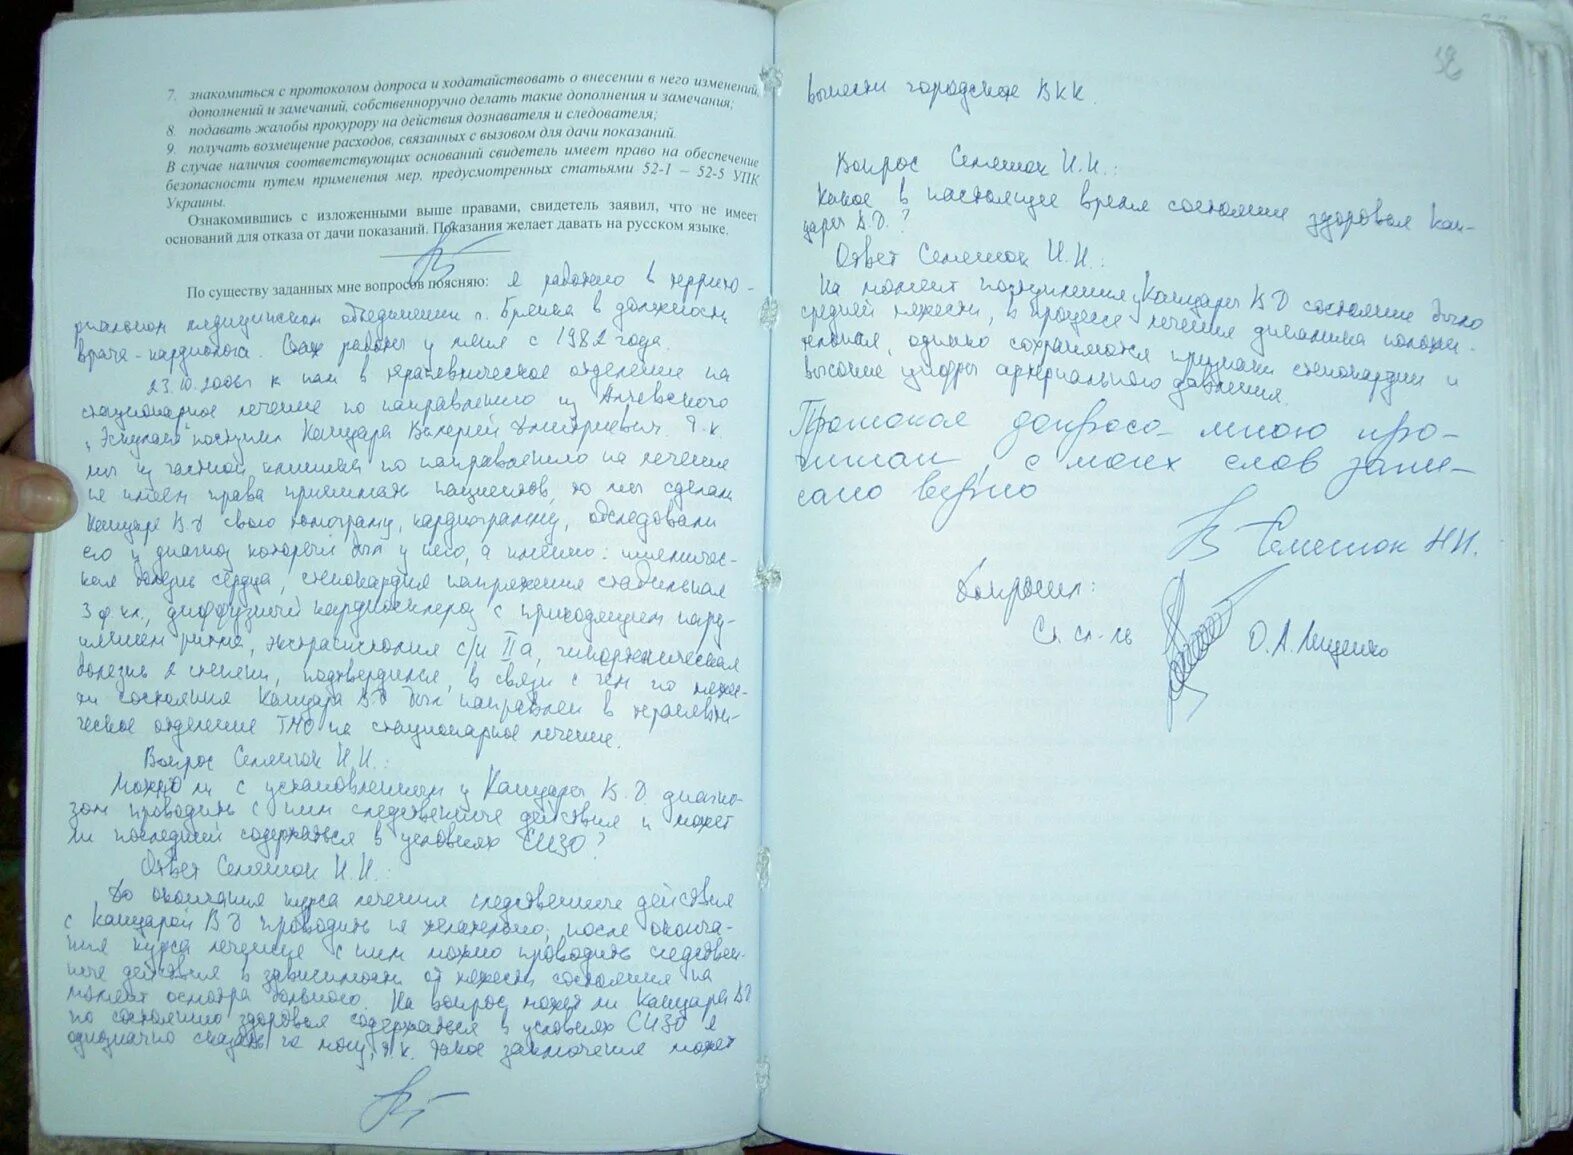 7. знакомиться с протоколом допроса и ходатайствовать о внесении в него изменений,
дополнений и замечаний, собственноручно делать такие дополнения и замечания;
8. подавать жалобы прокурору на действия дознавателя и следователя;
9. получать возмещение расходов, связанных с вызовом для дачи показаний.
В случае наличия соответствующих оснований свидетель имеет право на обеспечение
безопасности путем применения мер, предусмотренных статьями 52-1 – 52-5 УПК
Украины.
Ознакомившись с изложенными выше правами, свидетель заявил, что не имеет
оснований для отказа от дачи показаний. Показания желает давать на русском языке.
По существу заданных мне вопросов поясняю: я работаю в террито-
риальном медицинском объединении г. Брянка в должности
врача-кардиолога. Стаж работы у меня с 1982 года.
23.10.2006г к нам в терапевтическое отделение на
стационарное лечение по направлению из Алчевского
"Эскулап" поступил Кашдара Валерий Дмитриевич. Т.к.
мы из частной клиники по направлению на лечение
не имеем права принимать пациентов, то мы сделали
Кашдаре В.Д свою томограму, кардиограмму, обследовали
его и диагноз который был у него, а именно: ишемичес-
кая болезнь сердца, стенокардия напряжения стабильная
3 ф.кл., диффузный кардиосклероз с приходящим нару-
шением ритма, экстрасистолия с/н IIа, гипертоническая
болезнь 2 степени, подтвердился, в связи с чем по тяжес-
ти состояния Кашдара В.Д был направлен в терапевти-
ческое отделение ТМО на стационарное лечение.
Вопрос Семешок Н.И.:
Можно ли с установленным у Кашдары В.Д. диагно-
зом проводить с ним следственные действия и может
ли последний содержаться в условиях СИЗО?
Ответ Семешок Н.И.:
До окончания курса лечения следственные действия
с Кашдарой В.Д проводить не желательно, после оконча-
ния курса лечения с ним можно проводить следствен-
ные действия в зависимости от тяжести состояния на
момент осмотра больного. На вопрос, может ли Кашдара В.Д
по состоянию здоровья содержаться в условиях СИЗО я
однозначно сказать не могу, т.к. такое заключение может
вынести городская ВКК.
Вопрос Семешок Н.И.:
Какое в настоящее время состояние здоровья Каш-
дары В.Д.?
Ответ Семешок Н.И.:
На момент поступления у Кашдары В.Д состояние было
средней тяжести, в процессе лечения динамика положи-
тельная, однако сохраняются признаки стенокардии и
высокие цифры артериального давления.
Протокол допроса мною про-
читан, с моих слов запи-
сано верно
Семешок Н.И.
Допросил:
Ст. сл-ль О.А. Лищенко